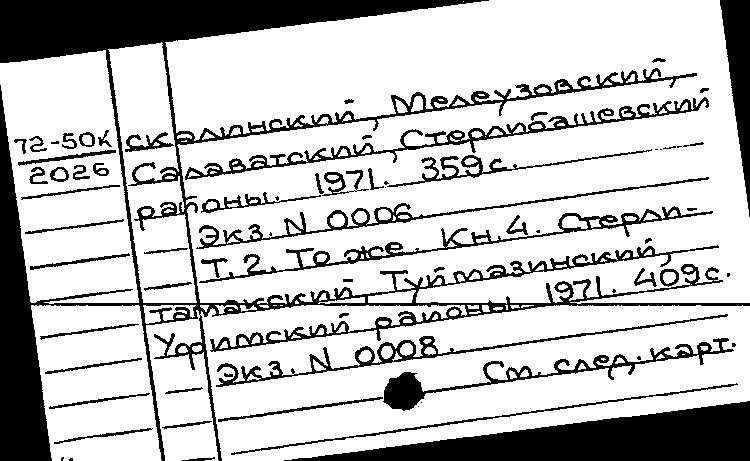 72-50К
2026
скалинский, Мелеузовский,
Салаватский, Стерлибашевский
районы. 1971. 359с.
Экз. N 0006.
Т. 2. То же. Кн. 4. Стерли-
тамакский, Туймазинский,
Уфимский районы. 1971. 409с.
Экз. N 0008.
См. след. карт.